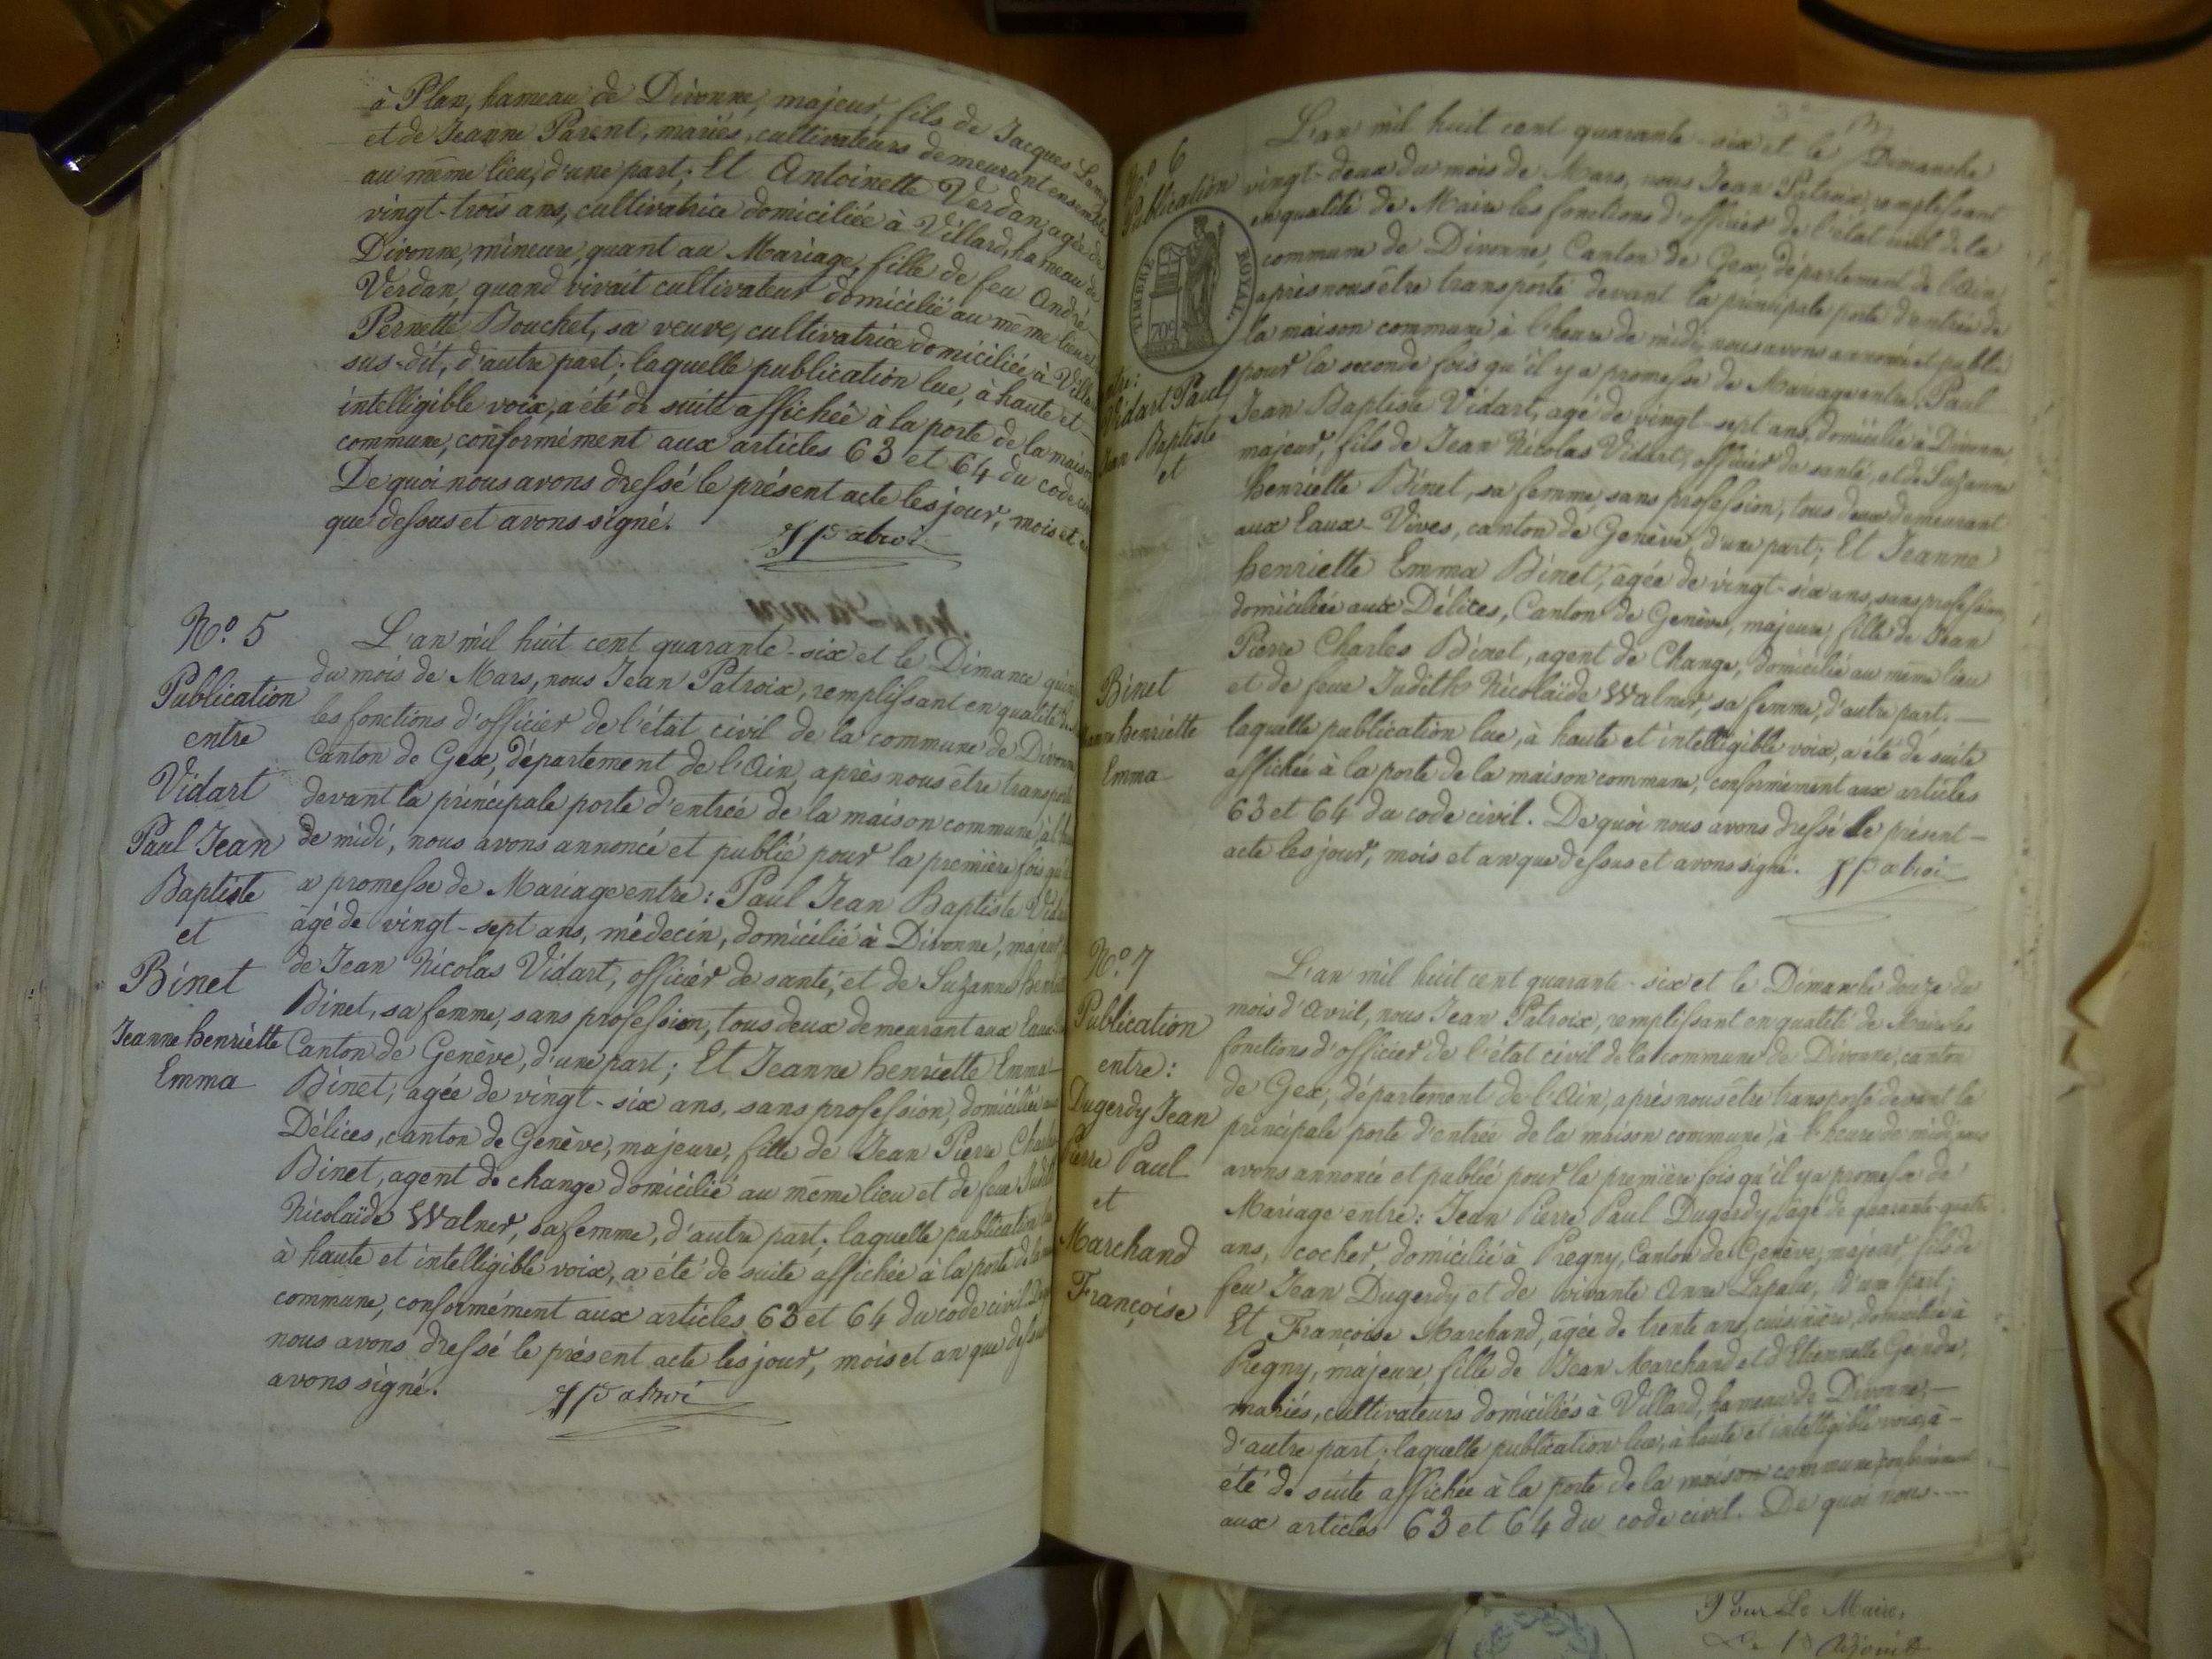 à Plan, hameau de Divonne, majeur, fils de Jacques
et de Jeanne Parent, mariés, cultivateurs demeurant ensemble
au même lieu, d'une part; Et Antoinette Verdan, agée de
vingt-trois ans, cultivatrice domiciliée à Villard, hameau de
Divonne, mineure, quant au Mariage, fille de feu André
Verdan, quand vivait cultivateur domicilié au même lieu
Pernette Bouchet, sa veuve, cultivatrice domiciliée à Villard
sus-dit, d'autre part; laquelle publication lue, à haute et
intelligible voix, a été de suite affichée à la porte de la maison
commune, conformément aux articles 63 et 64 du code
De quoi nous avons dressé le présent acte les jour, mois et
que dessus et avons signé.
N.º 5
Publication
entre
Vidart
Paul Jean
Baptiste
et
Binet
Jeanne henriette
Emma
L'an mil huit cent quarante-six et le Dimance
du mois de Mars, nous Jean Patroix, remplissant en qualité
les fonctions d'officier de l'état civil de la commune de Divonne
Canton de Gex, département de l'Ain, après nous être transporté
devant la principale porte d'entrée de la maison commune,
de midi, nous avons annoncé et publié pour la première fois
a promesse de Mariage entre: Paul Jean Baptiste
âgé de vingt-sept ans, médecin, domicilié à Divonne, majeur
de Jean Nicolas Vidart, officier de santé, et de Suzanne
Binet, sa femme, sans profession, tous deux demeurant aux Eaux
Canton de Genève, d'une part; Et Jeanne henriette Emma
Binet, agée de vingt-six ans, sans profession, domiciliée
Délices, canton de Genève, majeure, fille de Jean Pierre
Binet, agent de change domicilié au même lieu et de feue
Nicolaïde Walner, sa femme, d'autre part; laquelle publication
à haute et intelligible voix, a été de suite affichée à la porte de la
commune, conformément aux articles 63 et 64 du code civil
nous avons dressé le présent acte les jour, mois et an que dessus
avons signé.
N.º 6
Publication
TIMBRE ROYAL.
Vidart Paul
Baptiste
et
Binet
henriette
Emma
L'an mil huit cent quarante-six et le Dimanche
vingt-deux du mois de Mars, nous Jean Patroix, remplissant
en qualité de Maire les fonctions d'officier de l'état civil de la
commune de Divonne, Canton de Gex, département de l'Ain,
après nous être transporté devant la principale porte d'entrée de
la maison commune, à l'heure de midi, nous avons annoncé et publié
pour la seconde fois qu'il y a promesse de Mariage entre: Paul
Jean Baptiste Vidart, agé de vingt-sept ans, domicilié à Divonne,
majeur, fils de Jean Nicolas Vidart, officier de santé, et de Suzanne
henriette Binet, sa femme, sans profession, tous deux demeurant
aux Eaux-Vives, canton de Genève, d'une part; Et Jeanne
henriette Emma Binet, âgée de vingt-six ans, sans profession,
domiciliée aux Délices, Canton de Genève, majeure, fille de Jean
Pierre Charles Binet, agent de Change, domicilié au même lieu
et de feue Judith Nicolaïde Walner, sa femme, d'autre part.
laquelle publication lue, à haute et intelligible voix, a été de suite
affichée à la porte de la maison commune, conformément aux articles
63 et 64 du code civil. De quoi nous avons dressé le présent
acte les jour, mois et an que dessus et avons signé.
N.º 7
Publication
entre:
Dugerdy Jean
Pierre Paul
et
Marchand
Françoise
L'an mil huit cent quarante-six et le Dimanche douze du
mois d'Avril, nous Jean Patroix, remplissant en qualité de Maire les
fonctions d'officier de l'état civil de la commune de Divonne, canton
de Gex, département de l'Ain, après nous être transporté devant la
principale porte d'entrée de la maison commune, à l'heure de midi, nous
avons annoncé et publié pour la première fois qu'il y a promesse de
Mariage entre: Jean Pierre Paul Dugerdy, âgé de quarante-quatre
ans, cocher, domicilié à Pregny, Canton de Genève, majeur, fils de
feu Jean Dugerdy et de vivante Anne d'une part;
Et Françoise Marchand, âgée de trente ans, cuisinière, domiciliée à
Pregny, majeure, fille de Jean Marchand et d'Etiennette
mariés, cultivateurs domiciliés à Villard, hameau de Divonne,
d'autre part; laquelle publication lue, à haute et intelligible voix, à
été de suite affichée à la porte de la maison commune, conformément
aux articles 63 et 64 du code civil. De quoi nous
Pour Le Maire,